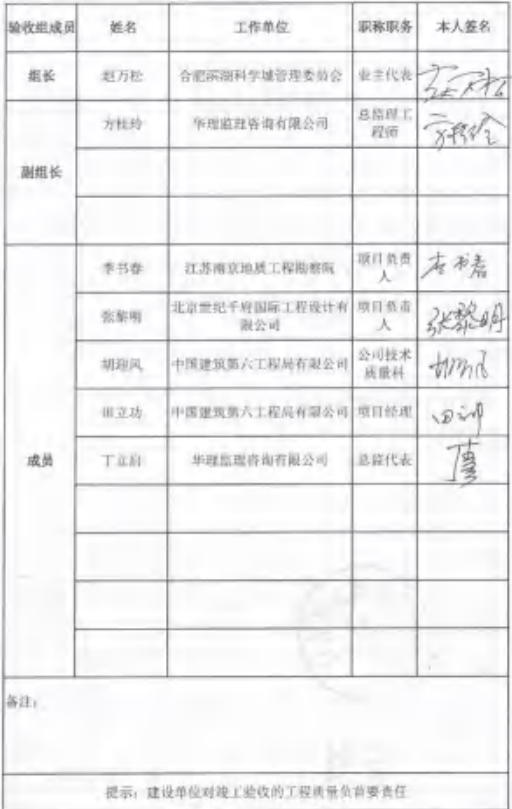 验收组成员 姓名 工作单位 职称职务 本人签名
组长 赵万松 合肥滨湖科学城管理委员会 业主代表
副组长 方桂玲 华理监理咨询有限公司 总监理工
程师 方桂玲
成员 李书春 江苏南京地质工程勘察院 项目负责
人 李书春
张黎明 北京世纪千府国际工程设计有
限公司 项目负责
人 张黎明
胡迎风 中国建筑第六工程局有限公司 公司技术
质量科
田立功 中国建筑第六工程局有限公司 项目经理
丁立启 华理监理咨询有限公司 总监代表
备注:
提示:建设单位对竣工验收的工程质量负首要责任